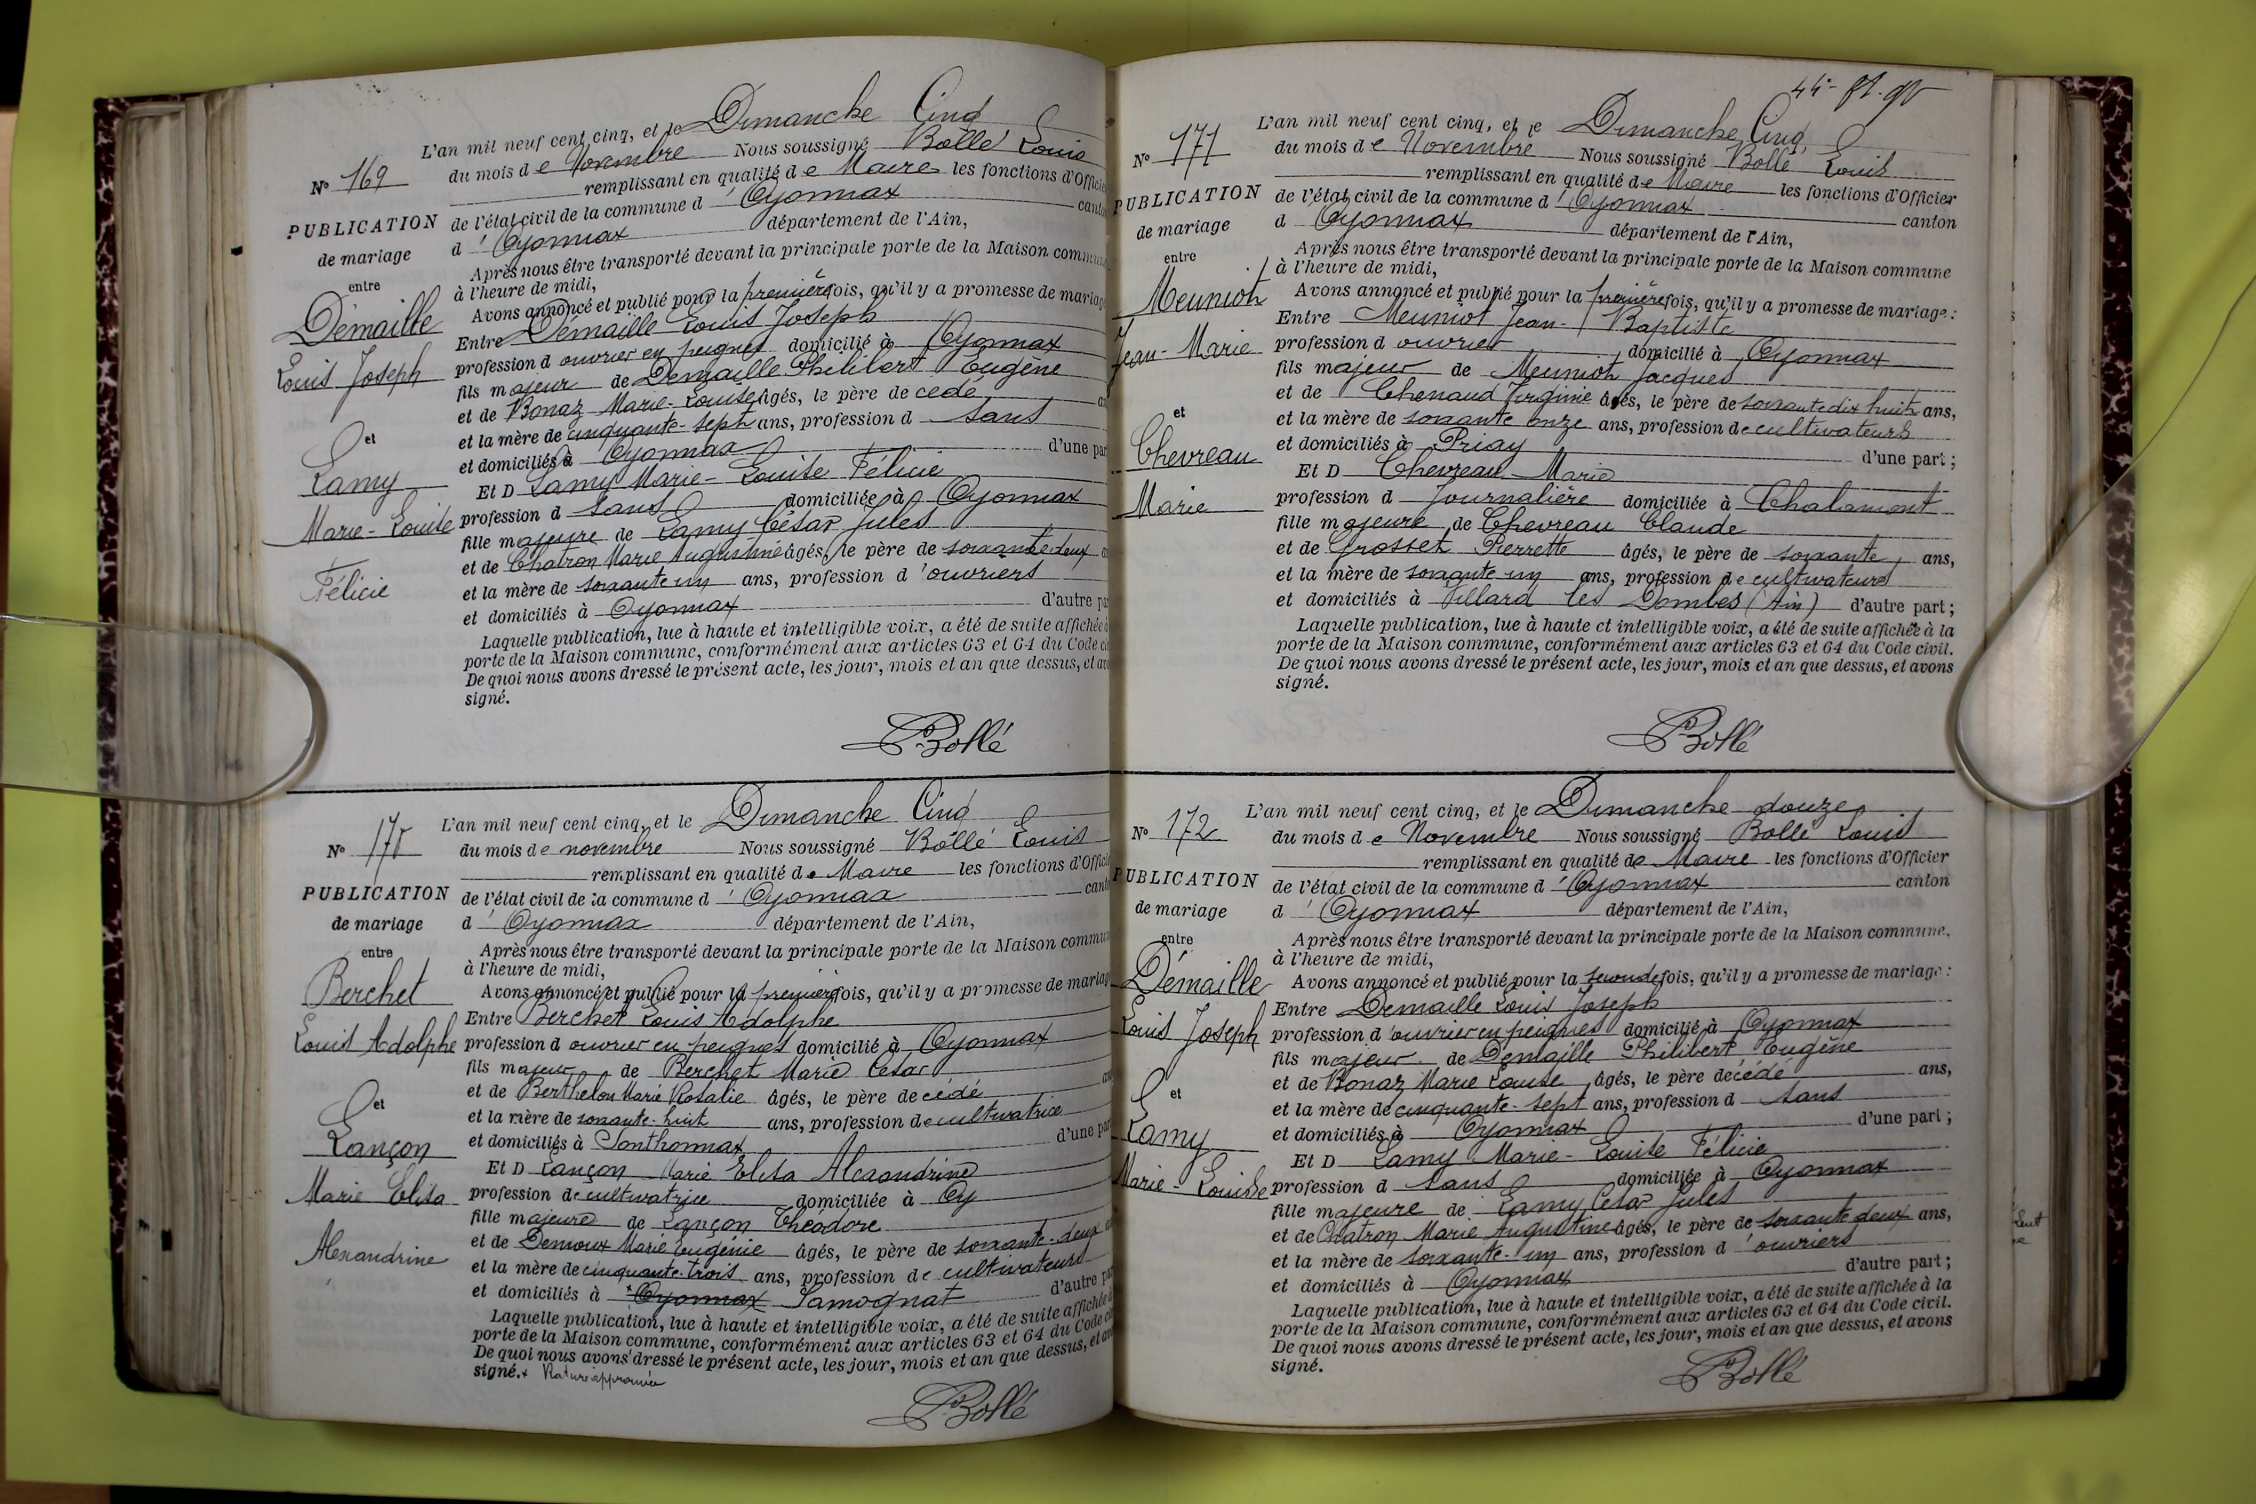 L'an mil neuf cent cinq, et le Dimanche Cinq
du mois de Novembre Nous soussigné Bollé Louis
remplissant en qualité de Maire les fonctions d'Officie
de l'état civil de la commune d'Oyonnax canto
d'Oyonnax département de l'Ain,
Après nous être transporté devant la principale porte de la Maison commune
à l'heure de midi,
Avons annoncé et publié pour la première fois, qu'il y a promesse de mariage
Entre Démaille Louis Joseph
profession d ouvrier en peignes domicilié à Oyonnax
fils majeur de Démaille Philibert Eugène
et de Bonaz Marie-Louise âgés, le père de cédé
et la mère de cinquante-sept ans, profession d sans
et domiciliés à Oyonnax d'une par
Et D Lamy Marie-Louise Félicie
profession d sans domiciliée à Oyonnax
fille majeure de Lamy César Jules
et de Chatron Marie Augustine âgés, le père de soixante deux
et la mère de soixante un ans, profession d'ouvriers
et domiciliés à Oyonnax d'autre pa
Laquelle publication, lue à haute et intelligible voix, a été de suite affichée à
porte de la Maison commune, conformément aux articles 63 et 64 du Code ci
De quoi nous avons dressé le présent acte, les jour, mois et an que dessus, et av
signé.
Bollé
N° 169
PUBLICATION
de mariage
entre
Démaille
Louis Joseph
et
Lamy
Marie-Louise
Félicie
L'an mil neuf cent cinq, et le Dimanche Cinq
du mois de novembre Nous soussigné Bollé Louis
remplissant en qualité de Maire les fonctions d'Offici
de l'état civil de la commune d'Oyonnax cant
d'Oyonnax département de l'Ain,
Après nous être transporté devant la principale porte de la Maison commun
à l'heure de midi,
Avons annoncé et publié pour la première fois, qu'il y a promesse de mariag
Entre Berchet Louis Adolphe
profession d ouvrier en peignes domicilié à Oyonnax
fils majeur de Berchet Marie César
et de Berthelon Marie Rosalie âgés, le père de cédé
et la mère de soixante-huit ans, profession de cultivatrice
et domiciliés à Sonthonnax d'une par
Et D Lançon Marie Elisa Alexandrine
profession de cultivatrice domiciliée à Oy
fille majeure de Lançon Théodore
et de Demoux Marie Eugénie âgés, le père de soixante-deux
et la mère de cinquante-trois ans, profession de cultivateurs
et domiciliés à Oyonnax Samognat d'autre par
Laquelle publication, lue à haute et intelligible voix, a été de suite affichée
porte de la Maison commune, conformément aux articles 63 et 64 du Code ci
De quoi nous avons dressé le présent acte, les jour, mois et an que dessus, et av
signé. Rature approuvée
Bollé
N° 170
PUBLICATION
de mariage
entre
Berchet
Louis Adolphe
et
Lançon
Marie Elisa
Alexandrine
L'an mil neuf cent cinq, et le Dimanche Cinq
du mois de Novembre Nous soussigné Bollé Louis
remplissant en qualité de Maire les fonctions d'Officier
de l'état civil de la commune d'Oyonnax canton
d Oyonnax département de l'Ain,
Après nous être transporté devant la principale porte de la Maison commune
à l'heure de midi,
Avons annoncé et publié pour la première fois, qu'il y a promesse de mariage :
Entre Meuniot Jean-Baptiste
profession d ouvrier domicilié à Oyonnax
fils majeur de Meuniot Jacques
et de Chenaud Virginie âgés, le père de soixante dix huit ans,
et la mère de soixante onze ans, profession de cultivateurs
et domiciliés à Priay d'une part ;
Et D Chevreau Marie
profession d Journalière domiciliée à Chalamont
fille majeure de Chevreau Claude
et de Grosset Pierrette âgés, le père de soixante ans,
et la mère de soixante un ans, profession de cultivateurs
et domiciliés à Villard les Dombes (Ain) d'autre part ;
Laquelle publication, lue à haute et intelligible voix, a été de suite affichée à la
porte de la Maison commune, conformément aux articles 63 et 64 du Code civil.
De quoi nous avons dressé le présent acte, les jour, mois et an que dessus, et avons
signé.
Bollé
N° 171
PUBLICATION
de mariage
entre
Meuniot
Jean-Marie
et
Chevreau
Marie
L'an mil neuf cent cinq, et le Dimanche douze
du mois de Novembre Nous soussigné Bollé Louis
remplissant en qualité de Maire les fonctions d'Officier
de l'état civil de la commune d'Oyonnax canton
d'Oyonnax département de l'Ain,
Après nous être transporté devant la principale porte de la Maison commune,
à l'heure de midi,
Avons annoncé et publié pour la seconde fois, qu'il y a promesse de mariage :
Entre Demaille Louis Joseph
profession d'ouvrier en peignes domicilié à Oyonnax
fils majeur de Demaille Philibert Eugène
et de Bonaz Marie Louise âgés, le père decédé ans,
et la mère de cinquante-sept ans, profession d sans
et domiciliés à Oyonnax d'une part ;
Et D Lamy Marie-Louise Félicie
profession d sans domiciliée à Oyonnax
fille majeure de Lamy César Jules
et de Chatron Marie Augustine âgés, le père de soixante deux ans,
et la mère de soixante-un ans, profession d'ouvriers
et domiciliés à Oyonnax d'autre part ;
Laquelle publication, lue à haute et intelligible voix, a été de suite affichée à la
porte de la Maison commune, conformément aux articles 63 et 64 du Code civil.
De quoi nous avons dressé le présent acte, les jour, mois et an que dessus, et avons
signé.
Bollé
N° 172
PUBLICATION
de mariage
entre
Démaille
Louis Joseph
et
Lamy
Marie-Louise